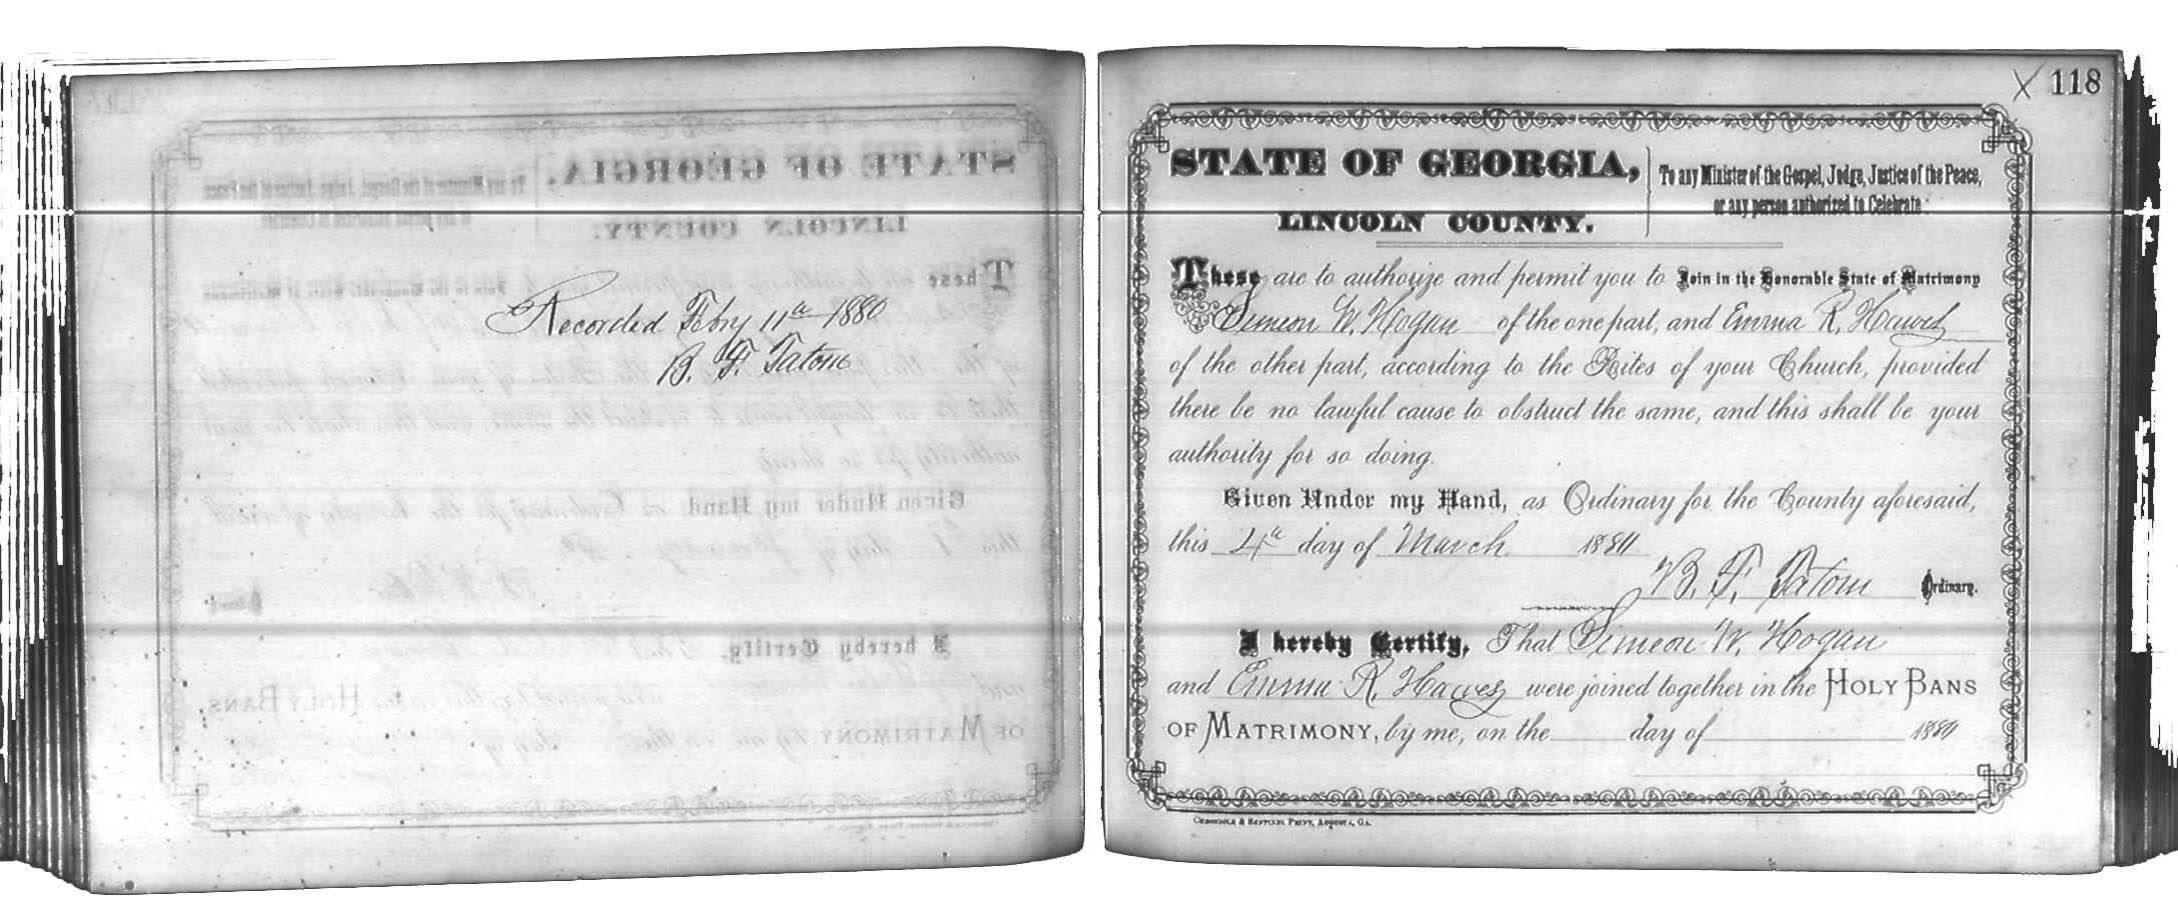 Recorded Febry 11th 1880
B. F. Tatom
X 118
STATE OF GEORGIA,
LINCOLN COUNTY.
To any Minister of the Gospel, Judge, Justice of the Peace,
or any person authorized to Celebrate:
These are to authorize and permit you to Join in the Honorable State of Matrimony
Simeon W. Hogan of the one part, and Emma R. Hawes
of the other part, according to the Rites of your Church, provided
there be no lawful cause to obstruct the same, and this shall be your
authority for so doing.
Given Under my Hand, as Ordinary for the County aforesaid,
this 4th day of March 1880
B. F. Tatom Ordinary.
I hereby Certify, That Simeon W. Hogan
and Emma R. Hawes were joined together in the HOLY BANS
OF MATRIMONY, by me, on the day of 1880
CHRONICLE & SENTINEL PRINT, AUGUSTA, GA.